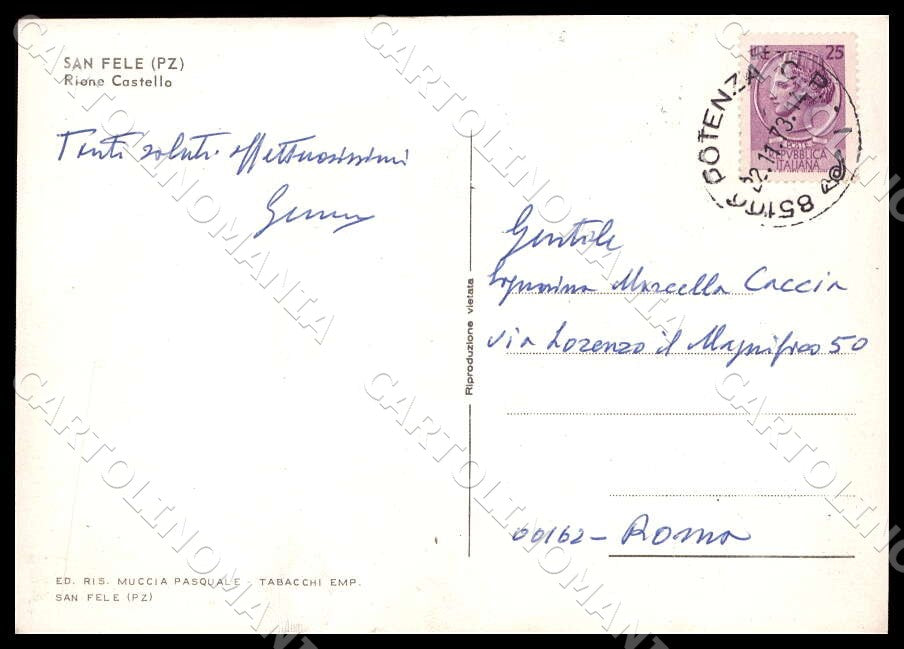 SAN FELE (PZ)
Rione Castello
Tanti saluti affettuosissimi
LIRE 25
POSTE
REPVBBLICA
ITALIANA
POTENZA C.P.
22.11.73
85100
Gentile
Signorina Marcella Caccia
via Lorenzo il Magnifico 50
00162 - Roma
Riproduzione vietata
ED. RIS. MUCCIA PASQUALE - TABACCHI EMP.
SAN FELE (PZ)
CARTOLINOMANIA